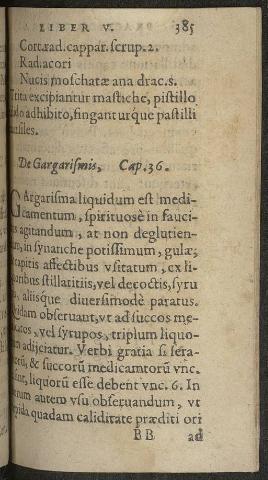 LIBER V. 385
Cort. rad. cappar. scrup. 2.
Rad. acori
Nucis moschatæ ana drac. s.
Trita excipiantur mastiche, pistillo
adhibito, fingantúrque pastilli
De Gargarismis, Cap. 36.
GArgarisma liquidum est medi-
camentum, spirituosè in fauci-
agitandum, at non deglutien-
in synanche potissimum, gulæ,
capitis affectibus vsitatum, ex li-
stillatitiis, vel decoctis, syru
aliísque diuersimodè paratus.
obseruant, vt ad succos me-
vel syrupos, triplum liquo-
adijciatur. Verbi gratia si sera-
& succorũ medicamtorũ vnc.
liquorũ esse debent vnc. 6. In
autem vsu obseruandum, vt
quadam caliditate præditi ori
BB ad